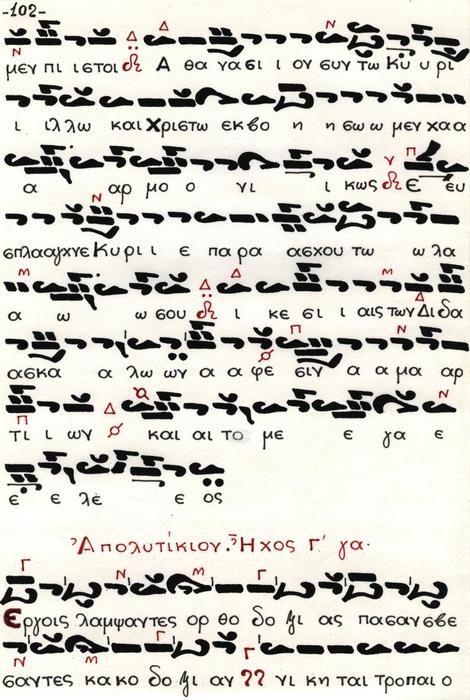 -102-
μεν πι ιστοι Α θα να σι ι ον συν τω Κυ υ ρι
ι ιλλω και Χριστω εκβο η η σω ω μεν χαα
α αρ μο ο νι ι κως Ε ευ
σπλααγχνε Κυρι ι ε πα ρα ασχου τω ω λα
α ω ω σου ι κε σι ι αις των Δι δα
ασκα α λω ων α α φε σιν α α μα αρ
τι ι ων και αι το με ε γα ε
ε ε λε ε ος
Ἀπολυτίκιον. Ἦχος Γ΄ γα.
Εργοις λαμψαντες ορ θο δο ξι ας πασαν σβε
σαντες κα κο δο ξι αν νι κη ται τροπαι ο